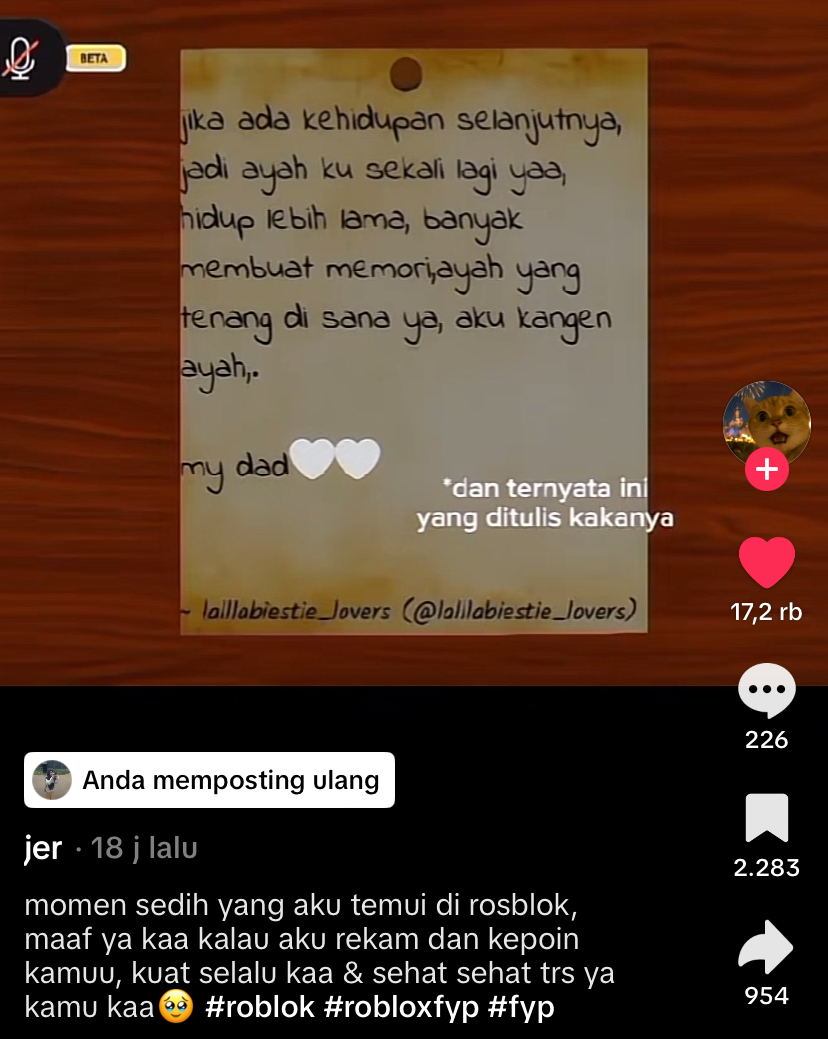 BETA
jika ada kehidupan selanjutnya,
jadi ayah ku sekali lagi yaa,
hidup lebih lama, banyak
membuat memori,ayah yang
tenang di sana ya, aku kangen
ayah,.
my dad🤍🤍
*dan ternyata ini
yang ditulis kakanya
~ laillabiestie_lovers (@lalilabiestie_lovers)
17,2 rb
226
2.283
954
Anda memposting ulang
jer · 18 j lalu
momen sedih yang aku temui di rosblok,
maaf ya kaa kalau aku rekam dan kepoin
kamuu, kuat selalu kaa & sehat sehat trs ya
kamu kaa🥹 #roblok #robloxfyp #fyp